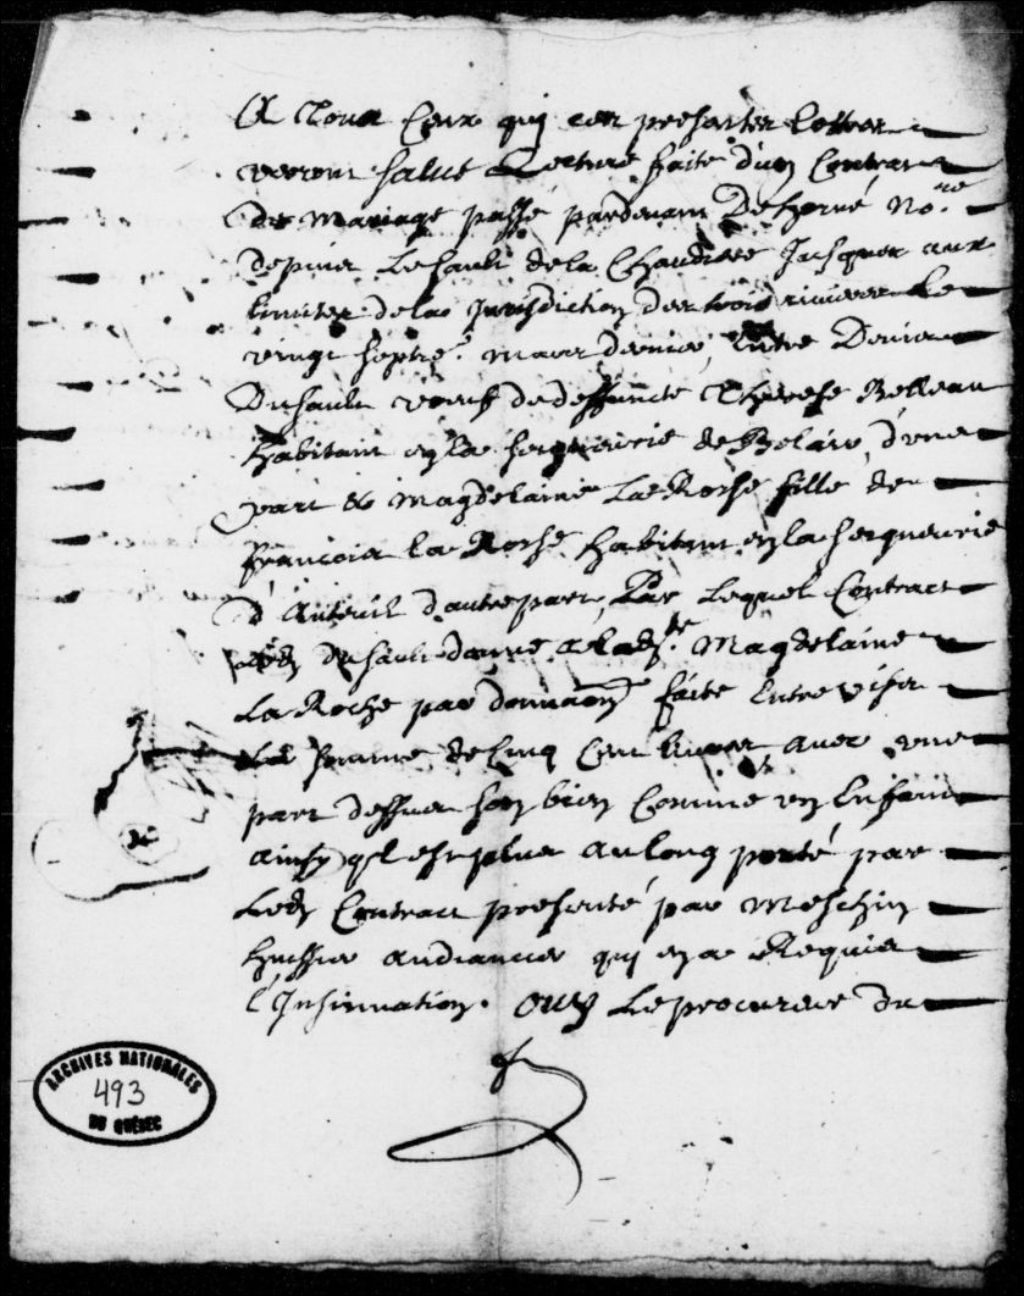 A Tous Ceux qui ces presentes lettres
verront salut Lecture faite d'un Contract
de Mariage passé pardevant De horné No.re
depuis Le sault de la Chaudiere Jusques aux
limites de la Jurisdiction des trois rivieres Le
vingt septie. mars dernier, Entre Denier
Dusault veuf de deffuncte Therese Belleau
habitant en la seigneurie de Belair d'une
part & Magdelaine La Roche fille de
francois la Roche habitant en la seigneurie
d'Auteuil dautre part, Par Lequel Contract
led dusault donne a lad.te Magdelaine
La Roche par donnaon faite Entre vifs
La somme de Cinq Cent livres avec une
part dessus son bien Comme un Enfant
ainsy qu'l est plus au long porté par
Led Contract presenté par Meschin
huissier audiancier qui en a Requis
l'Insinuation. Ouy Le procureur du
ARCHIVES NATIONALES
493
DU QUÉBEC